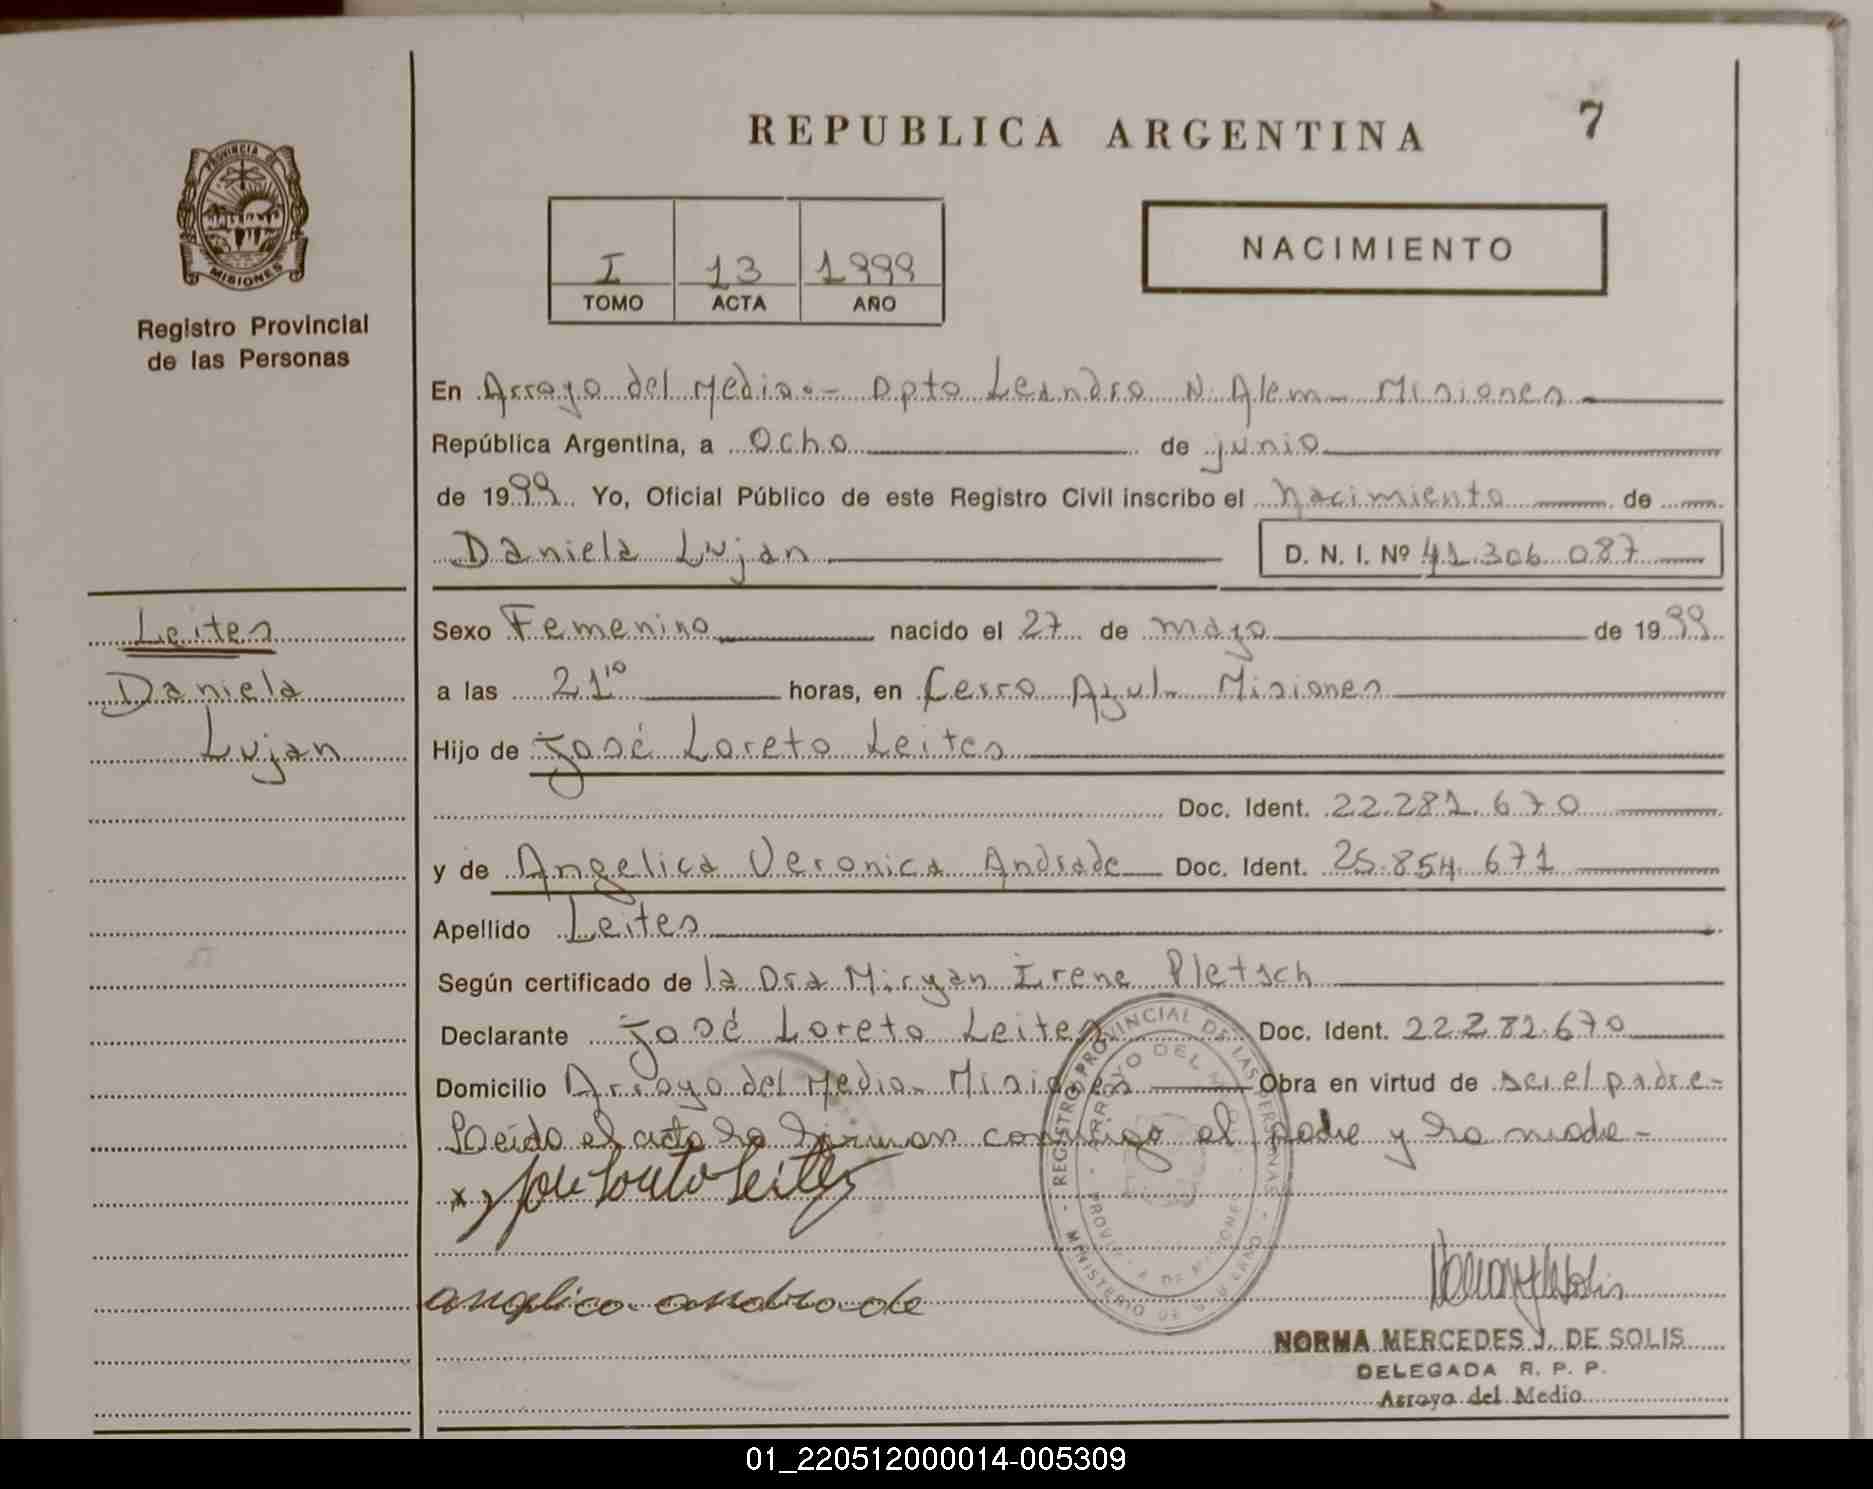 REPUBLICA ARGENTINA
7
PROVINCIA DE
MISIONES
Registro Provincial
de las Personas
I 13 1999
TOMO ACTA AÑO
NACIMIENTO
En Arroyo del Medio.- Dpto Leandro N. Alem - Misiones
República Argentina, a Ocho de junio
de 1999 Yo, Oficial Público de este Registro Civil inscribo el nacimiento de
Daniela Lujan D. N. I. Nº 41.306.087
Leites
Daniela
Lujan
Sexo Femenino nacido el 27 de mayo de 1999
a las 21'10 horas, en Cerro Azul - Misiones
Hijo de José Loreto Leites
Doc. Ident. 22.281.670
y de Angelica Veronica Andrade Doc. Ident. 25.854.671
Apellido Leites
Según certificado de la Dra Miryan Irene Pletsch
Declarante José Loreto Leites Doc. Ident. 22.282.670
Domicilio Arroyo del Medio - Misiones Obra en virtud de ser el padre -
Leída el acta la firman conmigo el padre y la madre -
x José Loreto Leites
angelica andrade
REGISTRO PROVINCIAL DE LAS PERSONAS
ARROYO DEL MEDIO
PROVINCIA DE MISIONES
MINISTERIO DE GOBIERNO
NORMA MERCEDES J. DE SOLIS
DELEGADA R. P. P.
Arroyo del Medio
01_220512000014-005309